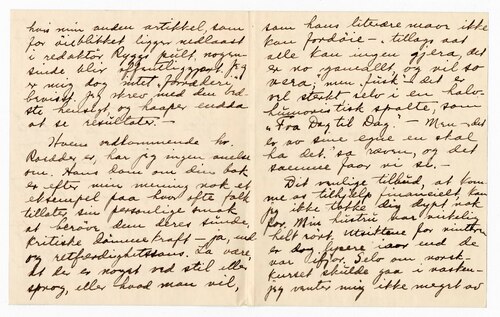 hvis min anden artikkel, som
for øieblikket ligger nedlaast
i redaktør Rygs pult nogen-
sinde blir offentliggjort. Jeg
er mig dog intet forræderi
bevisst. Jeg skrev med den bed-
ste hensigt, og haaper endda
at se resultater. —
Hvens vedkommende hr.
Roedder er, har jeg ingen anelse
om. Hans dom om din bok
er efter min mening nok et
eksempel paa hvor ofte folk
tillater sin personlige smak
at berøve dem deres sunde,
kritiske dømmekraft – ja, end
og retfærdighetssans. La være,
at der er noget ved stil eller
sprog, eller hvad man vil,
som hans literære mave ikke
kan fordøie – tillags aat
alle kan ingen gjera, det
er no gamalt, og vil so
vera; men "fisk" det er
vel sterkt selv i en halv-
humoristisk spalte, som
"Fra Dag til Dag" – Men det
er no sine egne en skal
ha det, sa ræven, og det
samme faar vi si. –
Dit venlige tilbud, at kom-
me os tilhjælp financielt kan
jeg ikke takke dig dypt nok
for. Min hustru var virkelig
helt rørt. Utsiktene for vinteren
er dog lysere iaar end de
var ifjor. Selv om norsk-
kurset skulde gaa i vasken –
jeg venter mig ikke meget av